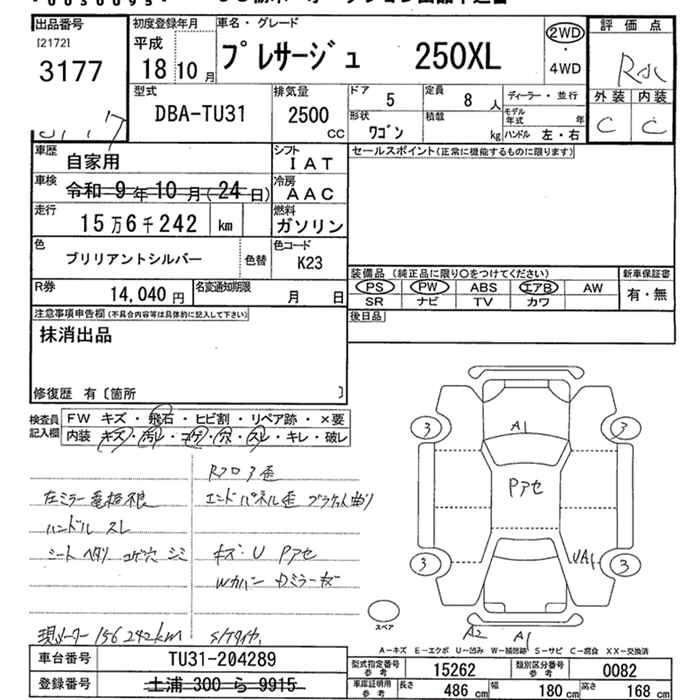 出品番号
[2172]
3177
初度登録年月
平成
18 10 月
車名・グレード
プレサージュ 250XL
2WD
・
4WD
評価点
外装 内装
C C
型式
DBA-TU31
排気量
2500
CC
ドア 5
定員 8 人
形状 ワゴン
積載 kg
ディーラー・並行
モデル年式 年
ハンドル 左・右
車歴 自家用
シフト IAT
セールスポイント(正常に機能するものに限ります)
車検 令和 9年 10月(24日)
冷房 AAC
走行 15万6千242 km
燃料 ガソリン
色 ブリリアントシルバー
色替
色コード K23
R券 14,040 円
名変通知期限 月 日
装備品 (純正品に限り○をつけてください)
新車保証書
PS PW ABS エアB AW
有・無
SR ナビ TV カワ
後日品
注意事項申告欄(不具合内容等は具体的に記入して下さい)
抹消出品
修復歴 有〔箇所 〕
検査員記入欄
FW キズ・飛石・ヒビ割・リペア跡・×要
内装 キズ・汚レ・コゲ・穴・スレ・キレ・破レ
Rフロア歪
左ミラー電格不良
エンドパネル歪 ブラケット曲り
ハンドル スレ
シート ヘタリ コゲ穴 シミ
キズ・U Pアセ
Wカバー Dミラーキズ
現メーター 156242km
3 3
A1
Pアセ
3 3
UA1
スペア
A2 A1
A-キズ E-エクボ U-凹み W-補修跡 S-サビ C-腐食 XX-交換済
車台番号 TU31-204289
登録番号 土浦 300 ら 9915
型式指定番号 参考 15262
類別区分番号 参考 0082
車庫証明用 参考
長さ 486 cm
幅 180 cm
高さ 168 cm